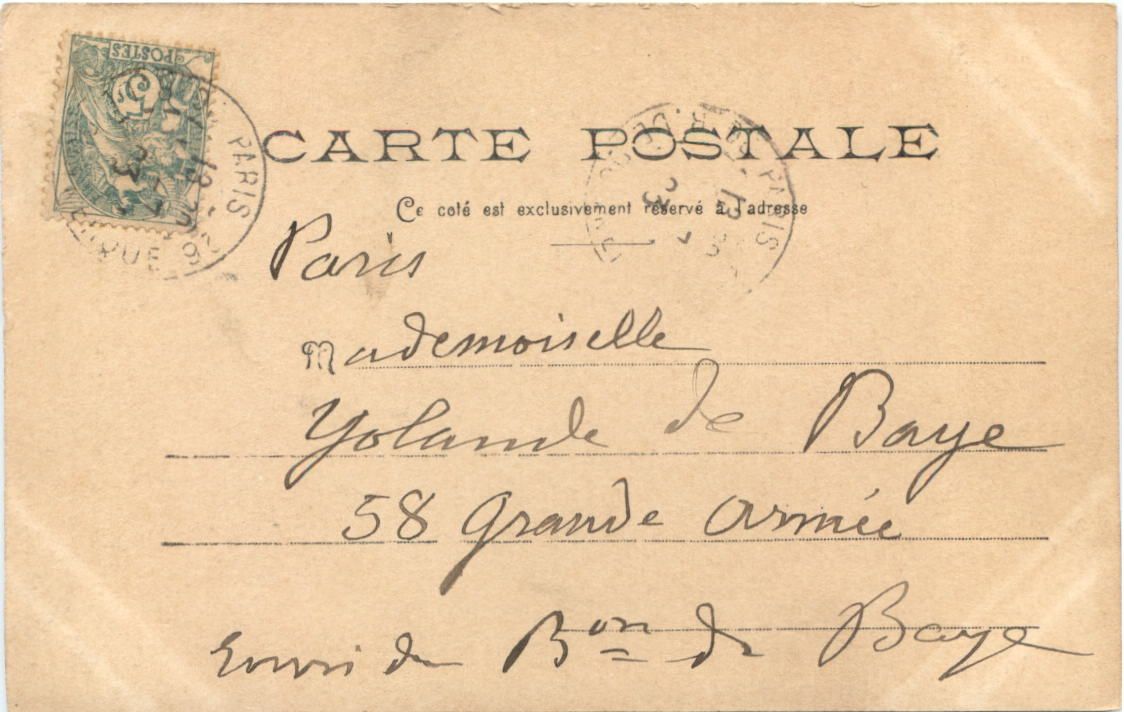 POSTES
PARIS
CARTE POSTALE
PARIS
Ce coté est exclusivement réservé à l'adresse
Paris
Mademoiselle
Yolande de Baye
58 Grande Armée
Envoi du Bon de Baye